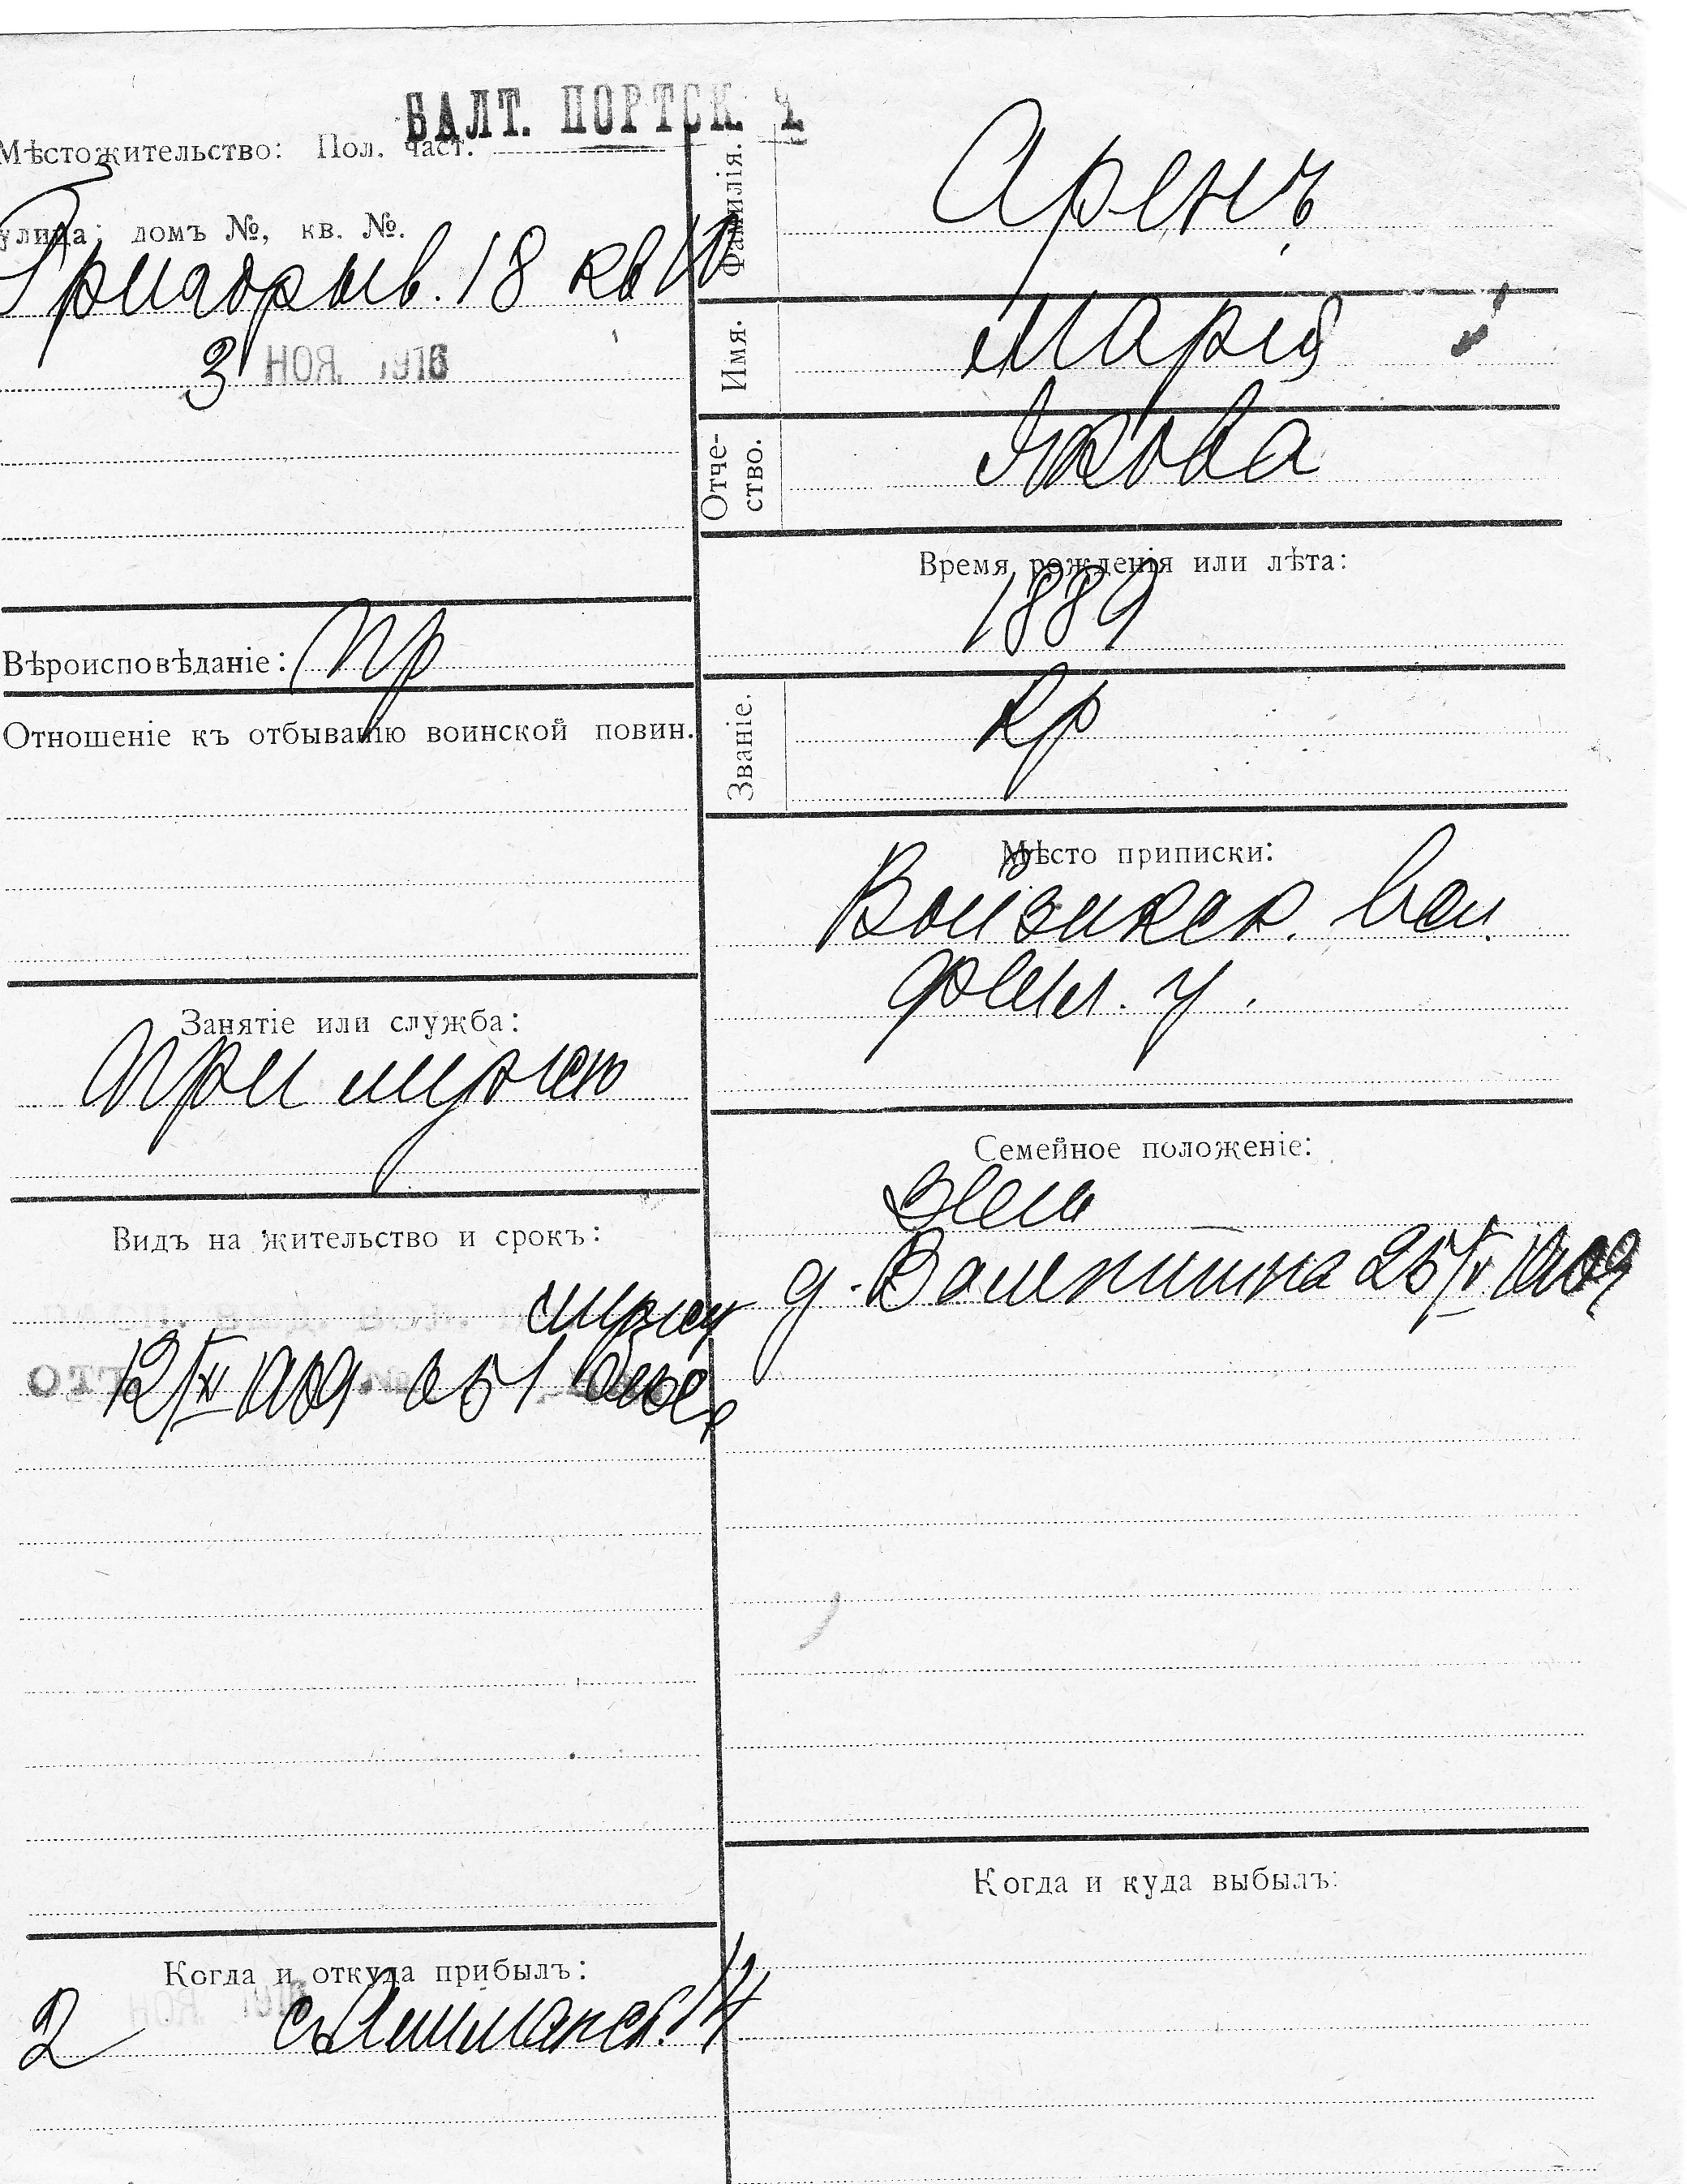 БАЛТ. ПОРТСК. Ч.
Мѣстожительство: Пол. част.
улица; домъ №, кв. №.
18 кв 10
3 НОЯ 1916
Вѣроисповѣданіе: Пр
Отношеніе къ отбыванію воинской повин.
Занятіе или служба:
При мужѣ
Видъ на жительство и срокъ:
12/XII 1909 051
Когда и откуда прибылъ:
2 14
Фамилія. Аренъ
Имя. Марія
Отче-
ство. Якова
Время рожденія или лѣта:
1889
Званіе. Кр
Мѣсто приписки:
Войзикск. вол.
Фелл. у.
Семейное положеніе:
Зам
д. Валентина 25/V 1909
Когда и куда выбылъ: